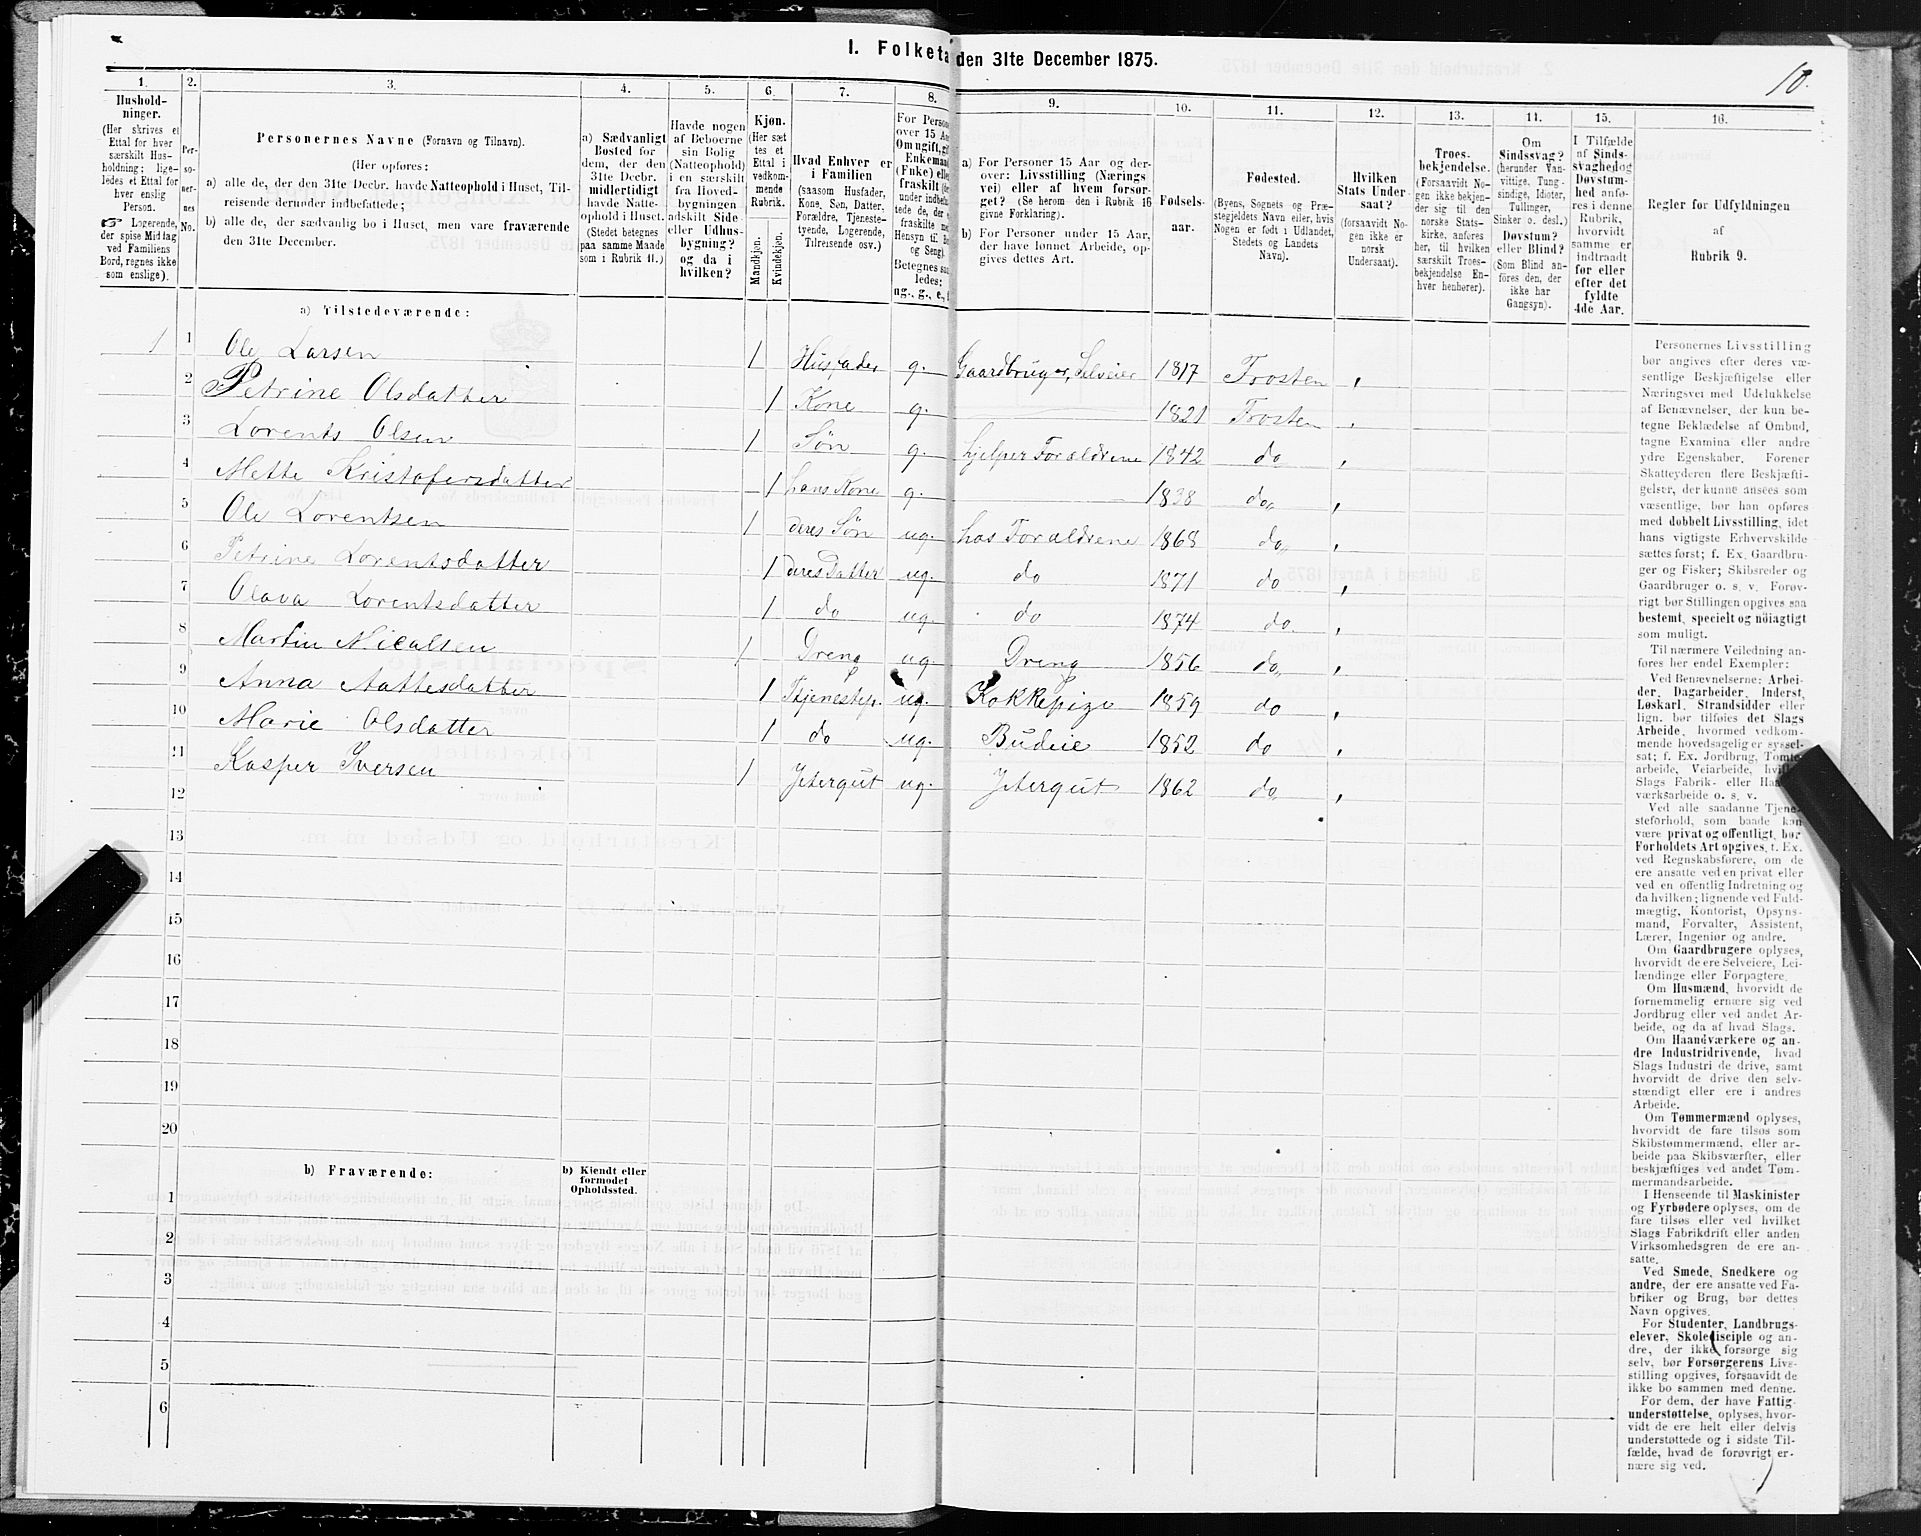 I. Folketa den 31te December 1875.
10.
1. 2. 3. 4. 5. 6. 7. 8. 9. 10. 11. 12. 13. 14. 15. 16.
Hushold-
ninger.
(Her skrives et
Ettal for hver
særskilt Hus-
holdning; lige-
ledes et Ettal for
hver enslig
Person.
☞ Logerende,
der spise Middag
ved Familiens
Bord, regnes ikke
som enslige).
Per-
so-
ner-
nes
No.
Personernes Navne (Fornavn og Tilnavn).
(Her opføres:
a) alle de, der den 31te Decbr. havde Natteophold i Huset, Til-
reisende derunder indbefattede;
b) alle de, der sædvanlig bo i Huset, men vare fraværende
den 31te December.
a) Sædvanligt
Bosted for
dem, der den
31te Decbr.
midlertidigt
havde Natte-
ophold i Huset.
(Stedet betegnes
paa samme Maade
som i Rubrik 11.)
Havde nogen
af Beboerne
sin Bolig
(Natteophold)
i en særskilt
fra Hoved-
bygningen
adskilt Side
eller Udhus-
bygning?
og da i
hvilken?
Kjøn.
(Her sæt
tes et
Ettal i
vedkom-
mende
Rubrik.
Mandkjøn.
Kvindekjøn.
Hvad Enhver er
i Familien
(saasom Husfader,
Kone, Søn, Datter,
Forældre, Tjeneste-
tyende, Logerende,
Tilreisende osv.)
For Persone
over 15 Aar
Om ugift, gif
Enkemand
(Enke) elle
fraskilt
Hensyn til Bo
og Seng).
Betegnes saa
ledes:
ug., g., e.,
a) For Personer 15 Aar og der-
over: Livsstilling (Nærings
vei) eller af hvem forsør-
get? (Se herom den i Rubrik 16
givne Forklaring).
b) For Personer under 15 Aar,
der have lønnet Arbeide, op-
gives dettes Art.
Fødsels-
aar.
Fødested.
(Byens, Sognets og Præ-
stegjeldets Navn eller, hvis
Nogen er født i Udlandet,
Stedets og Landets
Navn).
Hvilken
Stats Under-
saat?
(forsaavidt No-
gen ikke er
norsk
Undersaat).
Troes-
bekjendelse.
(Forsaavidt No-
gen ikke bekjen-
der sig til den
norske Stats-
kirke, anføres
her, til hvilken
særskilt Troes-
bekjendelse En-
hver henhører).
Om
Sindssvag?
(herunder Van-
vittige, Tung-
sindige, Idioter,
Tullinger,
Sinker o. desl.)
Døvstum?
eller Blind?
(Som Blind an-
føres den, der
ikke har
Gangsyn).
I Tilfælde
af Sinds-
svaghed og
Døvstum-
hed anfø-
res i denne
Rubrik,
hvorvidt
samme er
indtraadt
før eller
efter det
fyldte
4de Aar.
Regler for Udfyldningen
af
Rubrik 9.
a) Tilstedeværende:
1 1 Ole Larsen 1 Husfader g. Gaardbruger, Selveier 1817 Frosten
2 Petrine Olsdatter 1 Kone g. 1821 Frosten
3 Lorents Olsen 1 Søn g. hjelper Forældrene 1842 do
4 Mette Kristofersdatter 1 hans Kone g. 1838 do
5 Ole Lorentsen 1 deres Søn ug. hos Forældrene 1868 do
6 Petrine Lorentsdatter 1 deres Datter ug. do 1871 do
7 Olava Lorentsdatter 1 do ug. do 1874 do
8 Martin Nicalsen 1 Dreng ug. Dreng 1856 do
9 Anna 1 ug. Kokkepige 1859 do
10 Marie Olsdatter 1 do ug. Budeie 1852 do
11 Kasper Iversen 1 Jetergut ug. Jetergut 1862 do
12
13
14
15
16
17
18
19
20
b) Fraværende:
b) Kjendt eller
formodet
Opholdssted.
1
2
3
4
5
6
Personernes Livsstilling
bør angives efter deres væ-
sentlige Beskjæftigelse eller
Næringsvei med Udelukkelse
af Benævnelser, der kun be-
tegne Beklædelse af Ombud,
tagne Examina eller andre
ydre Egenskaber. Forener
Skatteyderen flere Beskjæfti-
gelser, der kunne ansees som
væsentlige, bør han opføres
med dobbelt Livsstilling, idet
hans vigtigste Erhvervskilde
sættes først; f. Ex. Gaardbru-
ger og Fisker; Skibsreder og
Gaardbruger o. s. v. Forøv-
rigt bør Stillingen opgives saa
bestemt, specielt og nöiagtigt
som muligt.
Til nærmere Veiledning an-
føres her endel Exempler:
Ved Benævnelserne: Arbei-
der, Dagarbeider, Inderst,
Løskarl, Strandsidder eller
lign. bør tilføies det Slags
Arbeide, hvormed vedkom-
mende hovedsagelig er syssel-
sat; f. Ex. Jordbrug, Tømte-
arbeide, Veiarbeide, hvilket
Slags Fabrik- eller Haand-
værksarbeide o. s. v.
Ved alle saadanne Tjene-
steforhold, som baade kan
være privat og offentligt, bør
Forholdets Art opgives, f. Ex.
ved Regnskabsførere, om de
ere ansatte ved en privat eller
ved en offentlig Indretning og
da hvilken; lignende ved Fuld-
mægtig, Kontorist, Opsyns-
mand, Forvalter, Assistent,
Lærer, Ingeniør og andre.
Om Gaardbrugere oplyses,
hvorvidt de ere Selveiere, Lei-
lændinge eller Forpagtere.
Om Husmænd, hvorvidt de
fornemmelig ernære sig ved
Jordbrug eller ved andet Ar-
beide, og da af hvad Slags.
Om Haandværkere og an-
dre Industridrivende, hvad
Slags Industri de drive, samt
hvorvidt de drive den selv-
stændigt eller ere i andres
Arbeide.
Om Tømmermænd oplyses,
hvorvidt de fare tilsøs som
Skibstømmermænd, eller ar-
beide paa Skibsværfter, eller
beskjæftiges ved andet Tøm-
mermandsarbeide.
I Henseende til Maskinister
og Fyrbødere oplyses, om de
fare tilsøs eller ved hvilket
Slags Fabrikdrift eller anden
Virksomhedsgren de ere an-
satte.
Ved Smede, Snedkere og
andre, der ere ansatte ved Fa-
briker og Brug, bør dettes
Navn opgives.
For Studenter, Landbrugs-
elever, Skoledisciple og an-
dre, der ikke forsørge sig
selv, bør Forsørgerens Livs-
stilling opgives, forsaavidt de
ikke bo sammen med denne.
For dem, der have Fattig-
understøttelse, oplyses, hvor-
vidt de ere helt eller delvis
understøttede og i sidste Til-
fælde, hvad de forøvrigt er-
nære sig ved.